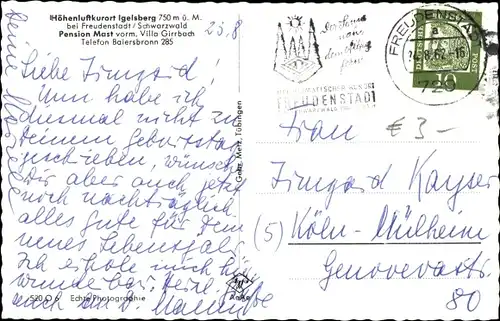 Höhenluftkurort Igelsberg 750 m ü. M.
bei Freudenstadt / Schwarzwald
Pension Mast vorm. Villa Girrbach
Telefon Baiersbronn 285
23.8
Liebe Irmgard!
Nun habe ich
diesmal nicht zu
Deinem Geburtstag
geschrieben, wünsche
Dir aber auch jetzt
noch nachträglich
alles Gute für Dein
neues Lebensjahr.
Ich erhole mich hier
wunderbar.
520 O 6 Echte Photographie
Gebr. Metz, Tübingen
FREUDENSTADT
FREUDENSTADT
729
Frau
€ 3-
Irmgard Kayser
(5) Köln-Mülheim
Genovevastr.
80